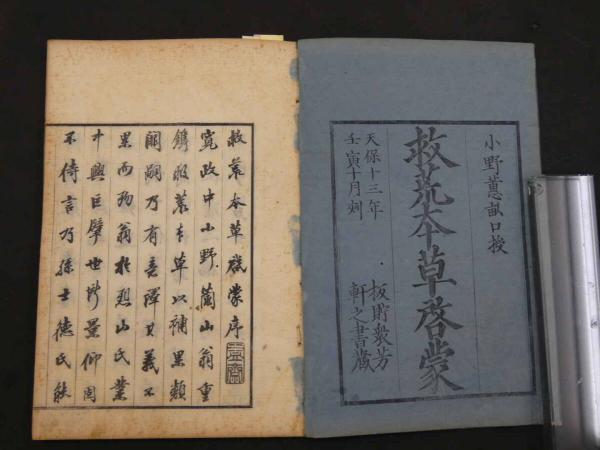 小野蕙畝口授
救荒本草啓蒙
天保十三年
壬寅十月刻
板貯衆芳
軒之書蔵
救荒本草啓蒙序
寛政中小野蘭山翁重
鐫救荒本草以補
乃有意譯其義不
果而歿翁於烈山氏業
中興巨擘世所景仰固
不待言乃孫士徳氏能